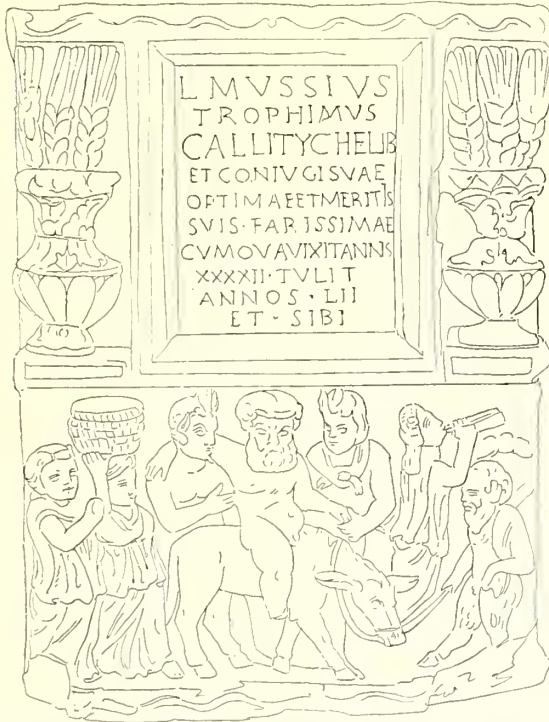 L MVSSIVS
TROPHIMVS
CALLITYCHELIB
ET CONIVGISVAE
OPTIMAEETMERITIS
SVIS · FARISSIMAE
CVMOVAVIXITANNIS
XXXXII · TVLIT
ANNOS · LII
ET · SIBI